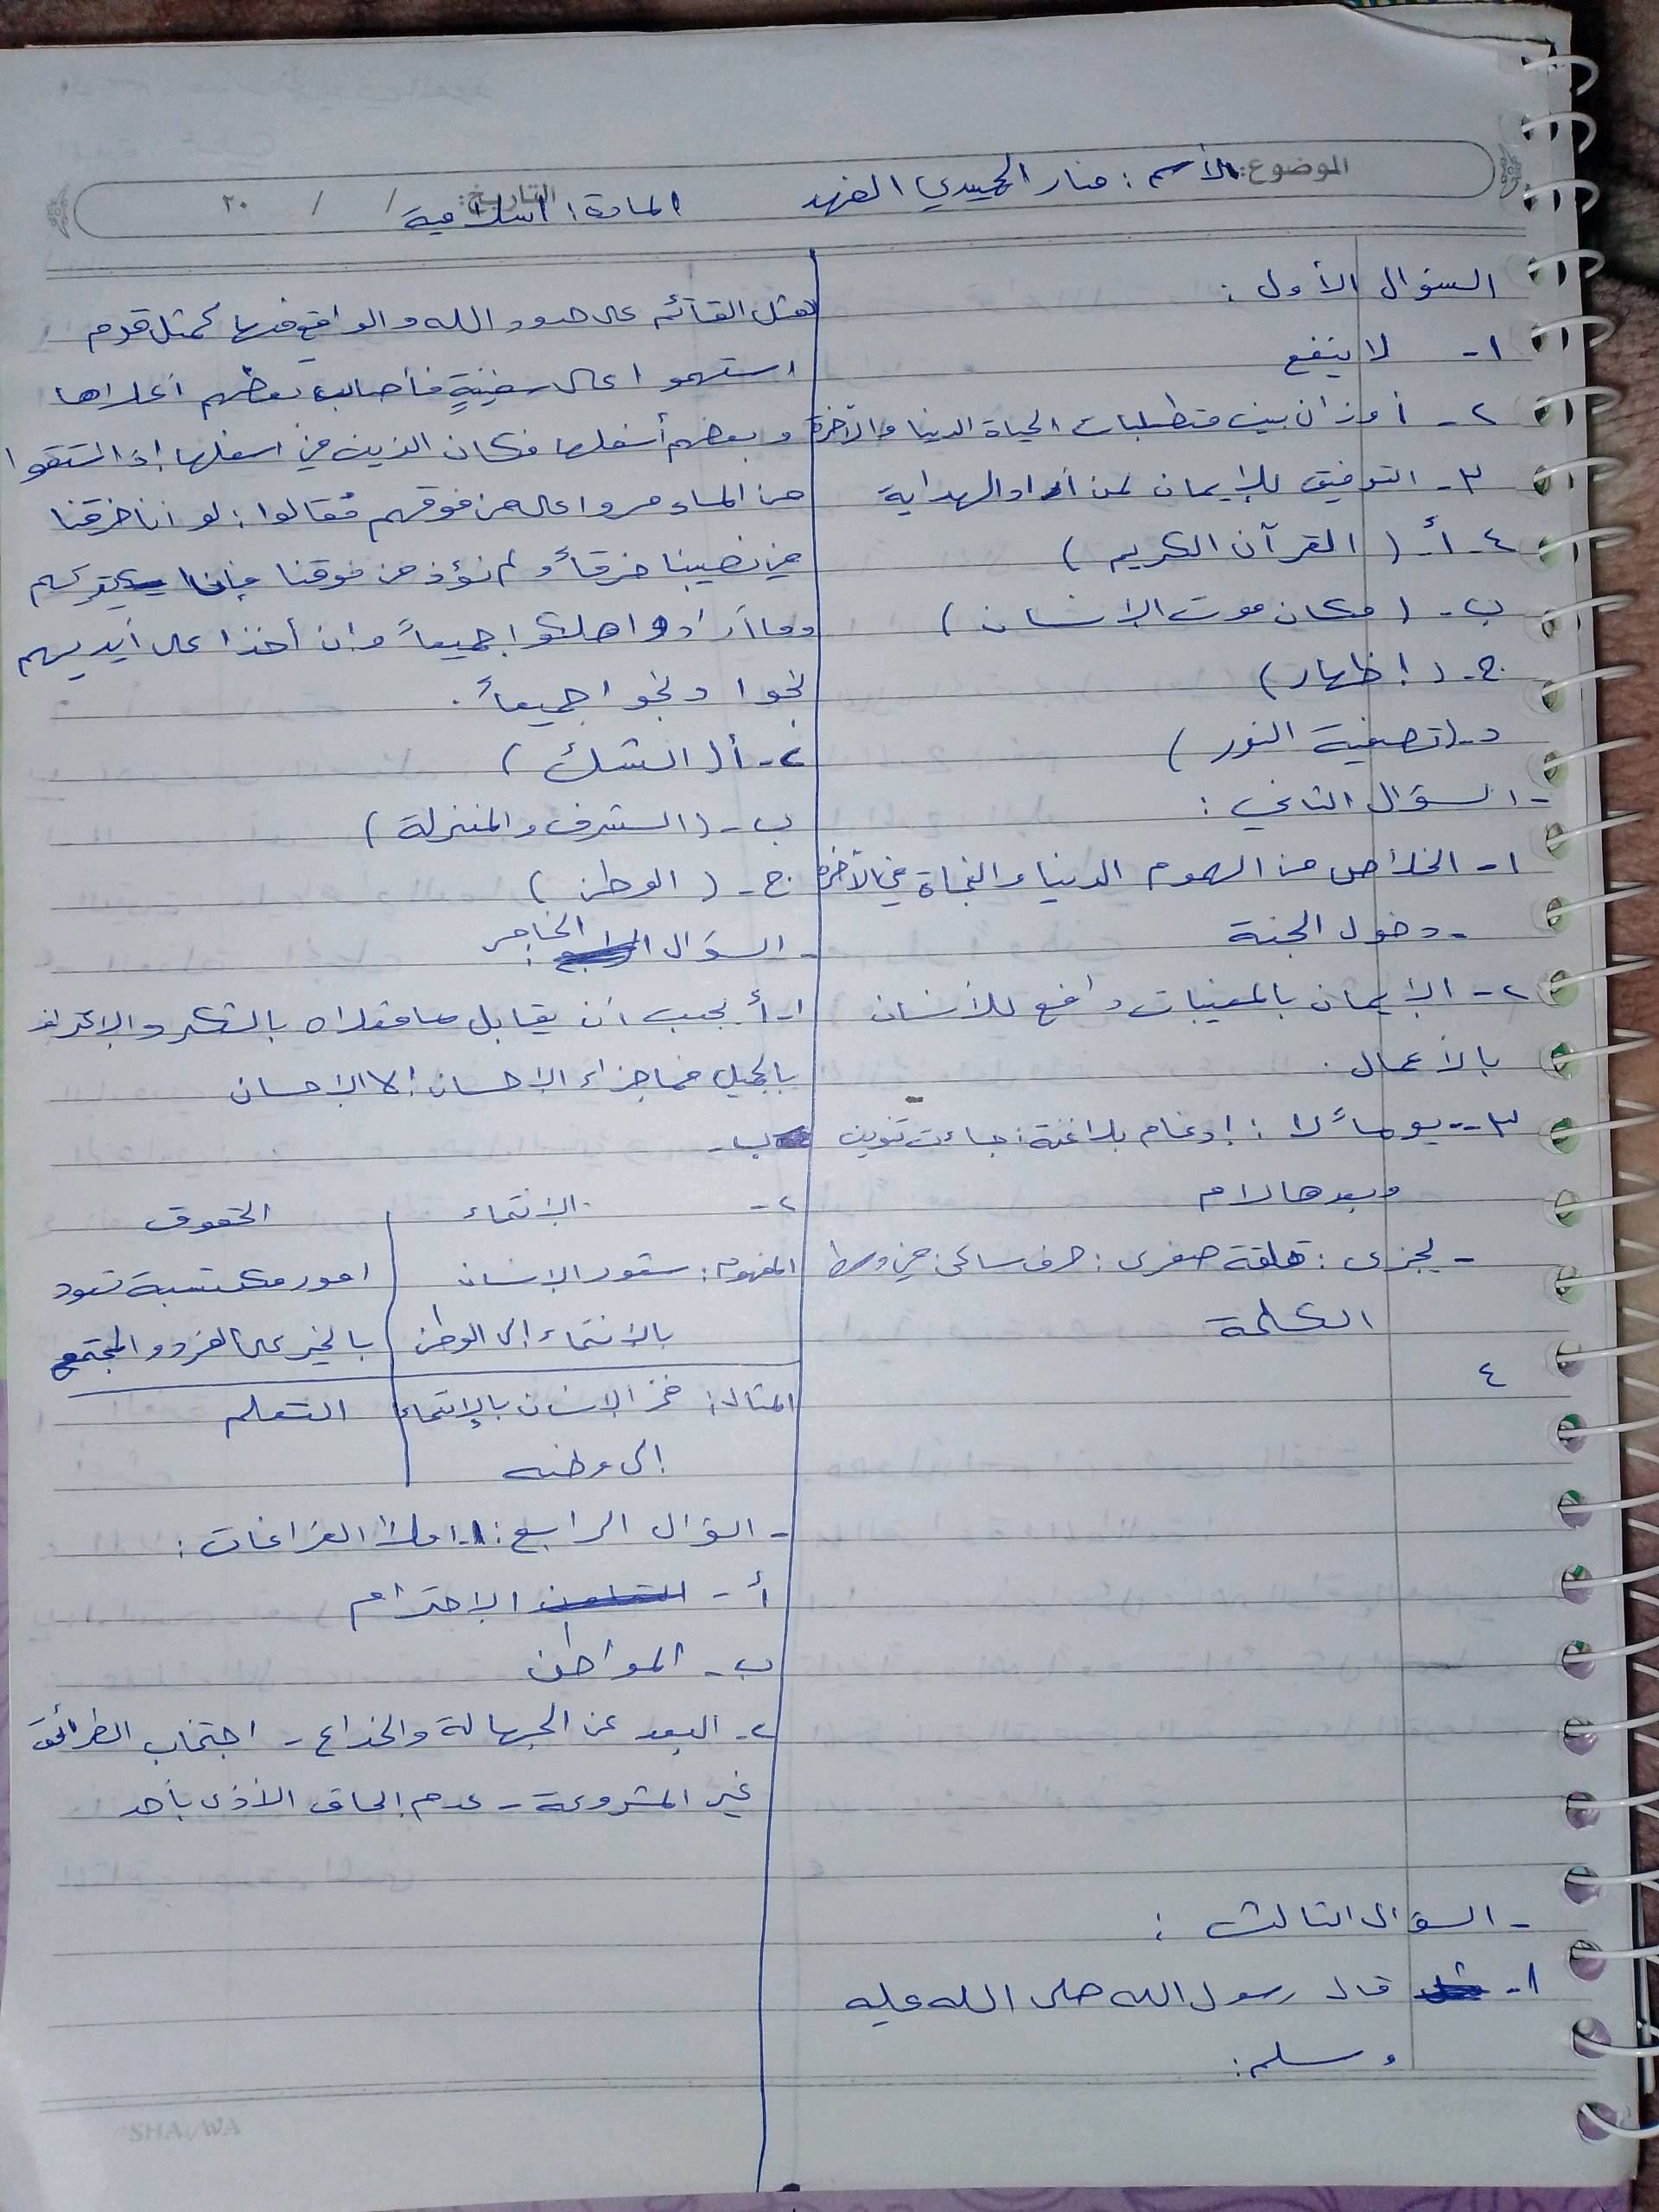 الموضوع: الأسم: منار الحميدي الفهد
التاريخ: / / ٢٠ المادة: اسلامية
السؤال الأول:
١- لا ينفع
٢- أوزان بين متطلبات الحياة الدنيا والآخرة
٣- التوفيق للإيمان لمن أراد الهداية
٤- أ- (القرآن الكريم)
ب- (مكان موت الإنسان)
ج- (إظهار)
د- (تصفية النور)
- السؤال الثاني:
١- الخلاص من الهموم الدنيا والنجاة في الآخرة
- دخول الجنة
٢- الإيمان بالمغيبات دافع للأنسان
بالأعمال.
٣- - يوماً لا: إدغام بلا غنة: جاءت تنوين
وبعدها لام
- يجزى: قلقة صغرى: حرف ساكن في وسط
الكلمة
٤
- السؤال الثالث:
١- قال رسول الله صلى الله عليه
وسلم:
مثل القآئم على حدود الله والواقع فيها كمثل قوم
استهموا على سفينةٍ فأصاب بعضهم أعلاها
وبعضهم أسفلها فكان الذين في اسفلها إذا استقوا
من الماء مروا على من فوقهم فقالوا: لو أنا خرقنا
في نصيبنا خرقاً ولم نؤذ من فوقنا فإن يتركهم
وما أرادوا هلكوا جميعاً وإن أخذا على أيديهم
نجوا ونجوا جميعاً.
٢- أ( الشك )
ب- (الشرف والمنزلة)
ج- ( الوطن )
- السؤال الخامس:
١- أ- يجب أن يقابل ما بالشكر والإعتراف
بالجميل فما جزاء الإحسان إلا الإحسان
ب-
٢- الإنتماء الحقوق
المفهوم: شعور الإنسان امور مكتسبة تعود
بالإنتماء إلى الوطن بالخير على الفرد والمجتمع
المثال: فخر الإنسان بالإنتماء التعلم
إلى وطنه
- السؤال الرابع: ١- املأ الفراغات:
أ- الإحترام
ب- المواطن
٢- البعد عن الجهالة والخداع - اجتناب الطرائق
غير المشروعة - عدم إلحاق الأذى بأحد
SHAWA